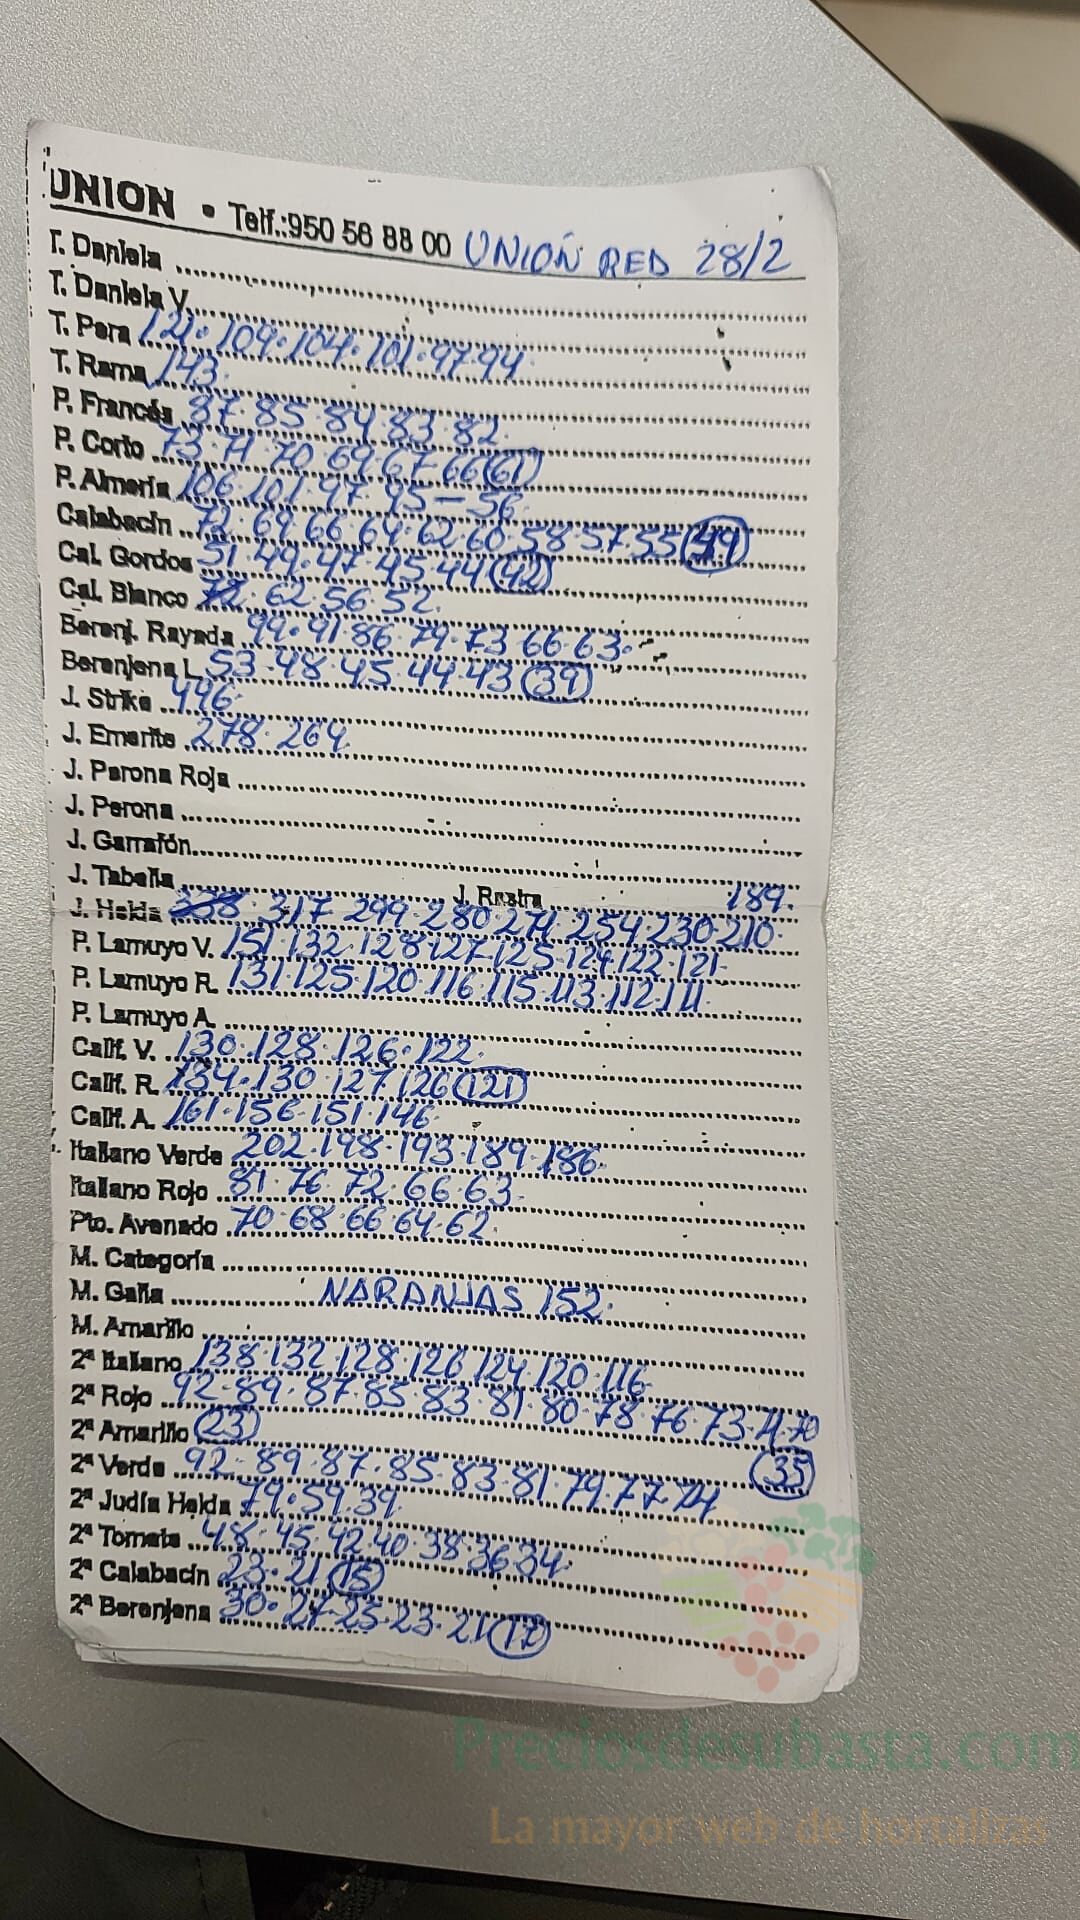 UNION • Telf.:950 56 88 00 UNIÓN RED 28/2
T. Daniela
T. Daniela V.
T. Pera 121·109·104·101·97·94
T. Rama 143·
P. Francés 87·85·84·83·82
P. Corto 73·71·70·69·67·66 (61)
P. Almería 106·101·97·95-56
Calabacín 72·69·66·64·62·60·58·57·55 (49)
Cal. Gordos 51·49·47·45·44 (42)
Cal. Blanco 72·62·56·52
Berenj. Rayada 99·91·86·79·73 66·63·
Berenjena L 53·48·45·44·43 (39)
J. Strike 446·
J. Emerite 278·264
J. Perona Roja
J. Perona
J. Garrafón
J. Tabella J. Rastra 189.
J. Helda 338·317·299·280·271·254·230·210
P. Lamuyo V. 151·132·128·127·125·124·122·121
P. Lamuyo R. 131·125·120·116·115·113·112·111
P. Lamuyo A.
Calif. V. 130·128·126·122·
Calif. R. 134·130·127·126 (121)
Calif. A. 161·156·151·146
Italiano Verde 202·198·193·189·186·
Italiano Rojo 81·76·72·66·63
Pto. Avenado 70·68·66·64·62
M. Categoría
M. Galia NARANJAS 152.
M. Amarillo
2ª Italiano 138·132·128·126·124·120·116
2ª Rojo 92·89·87·85·83·81·80·78·76·73·71·70
2ª Amarillo (23) (35)
2ª Verde 92·89·87·85·83·81·79·77·74
2ª Judía Helda 79·59·39
2ª Tomate 48·45·42·40·38·36·34·
2ª Calabacín 23·21 (15)
2ª Berenjena 30·27·25·23·21 (17)
Preciosdesubasta.com
La mayor web de hortalizas